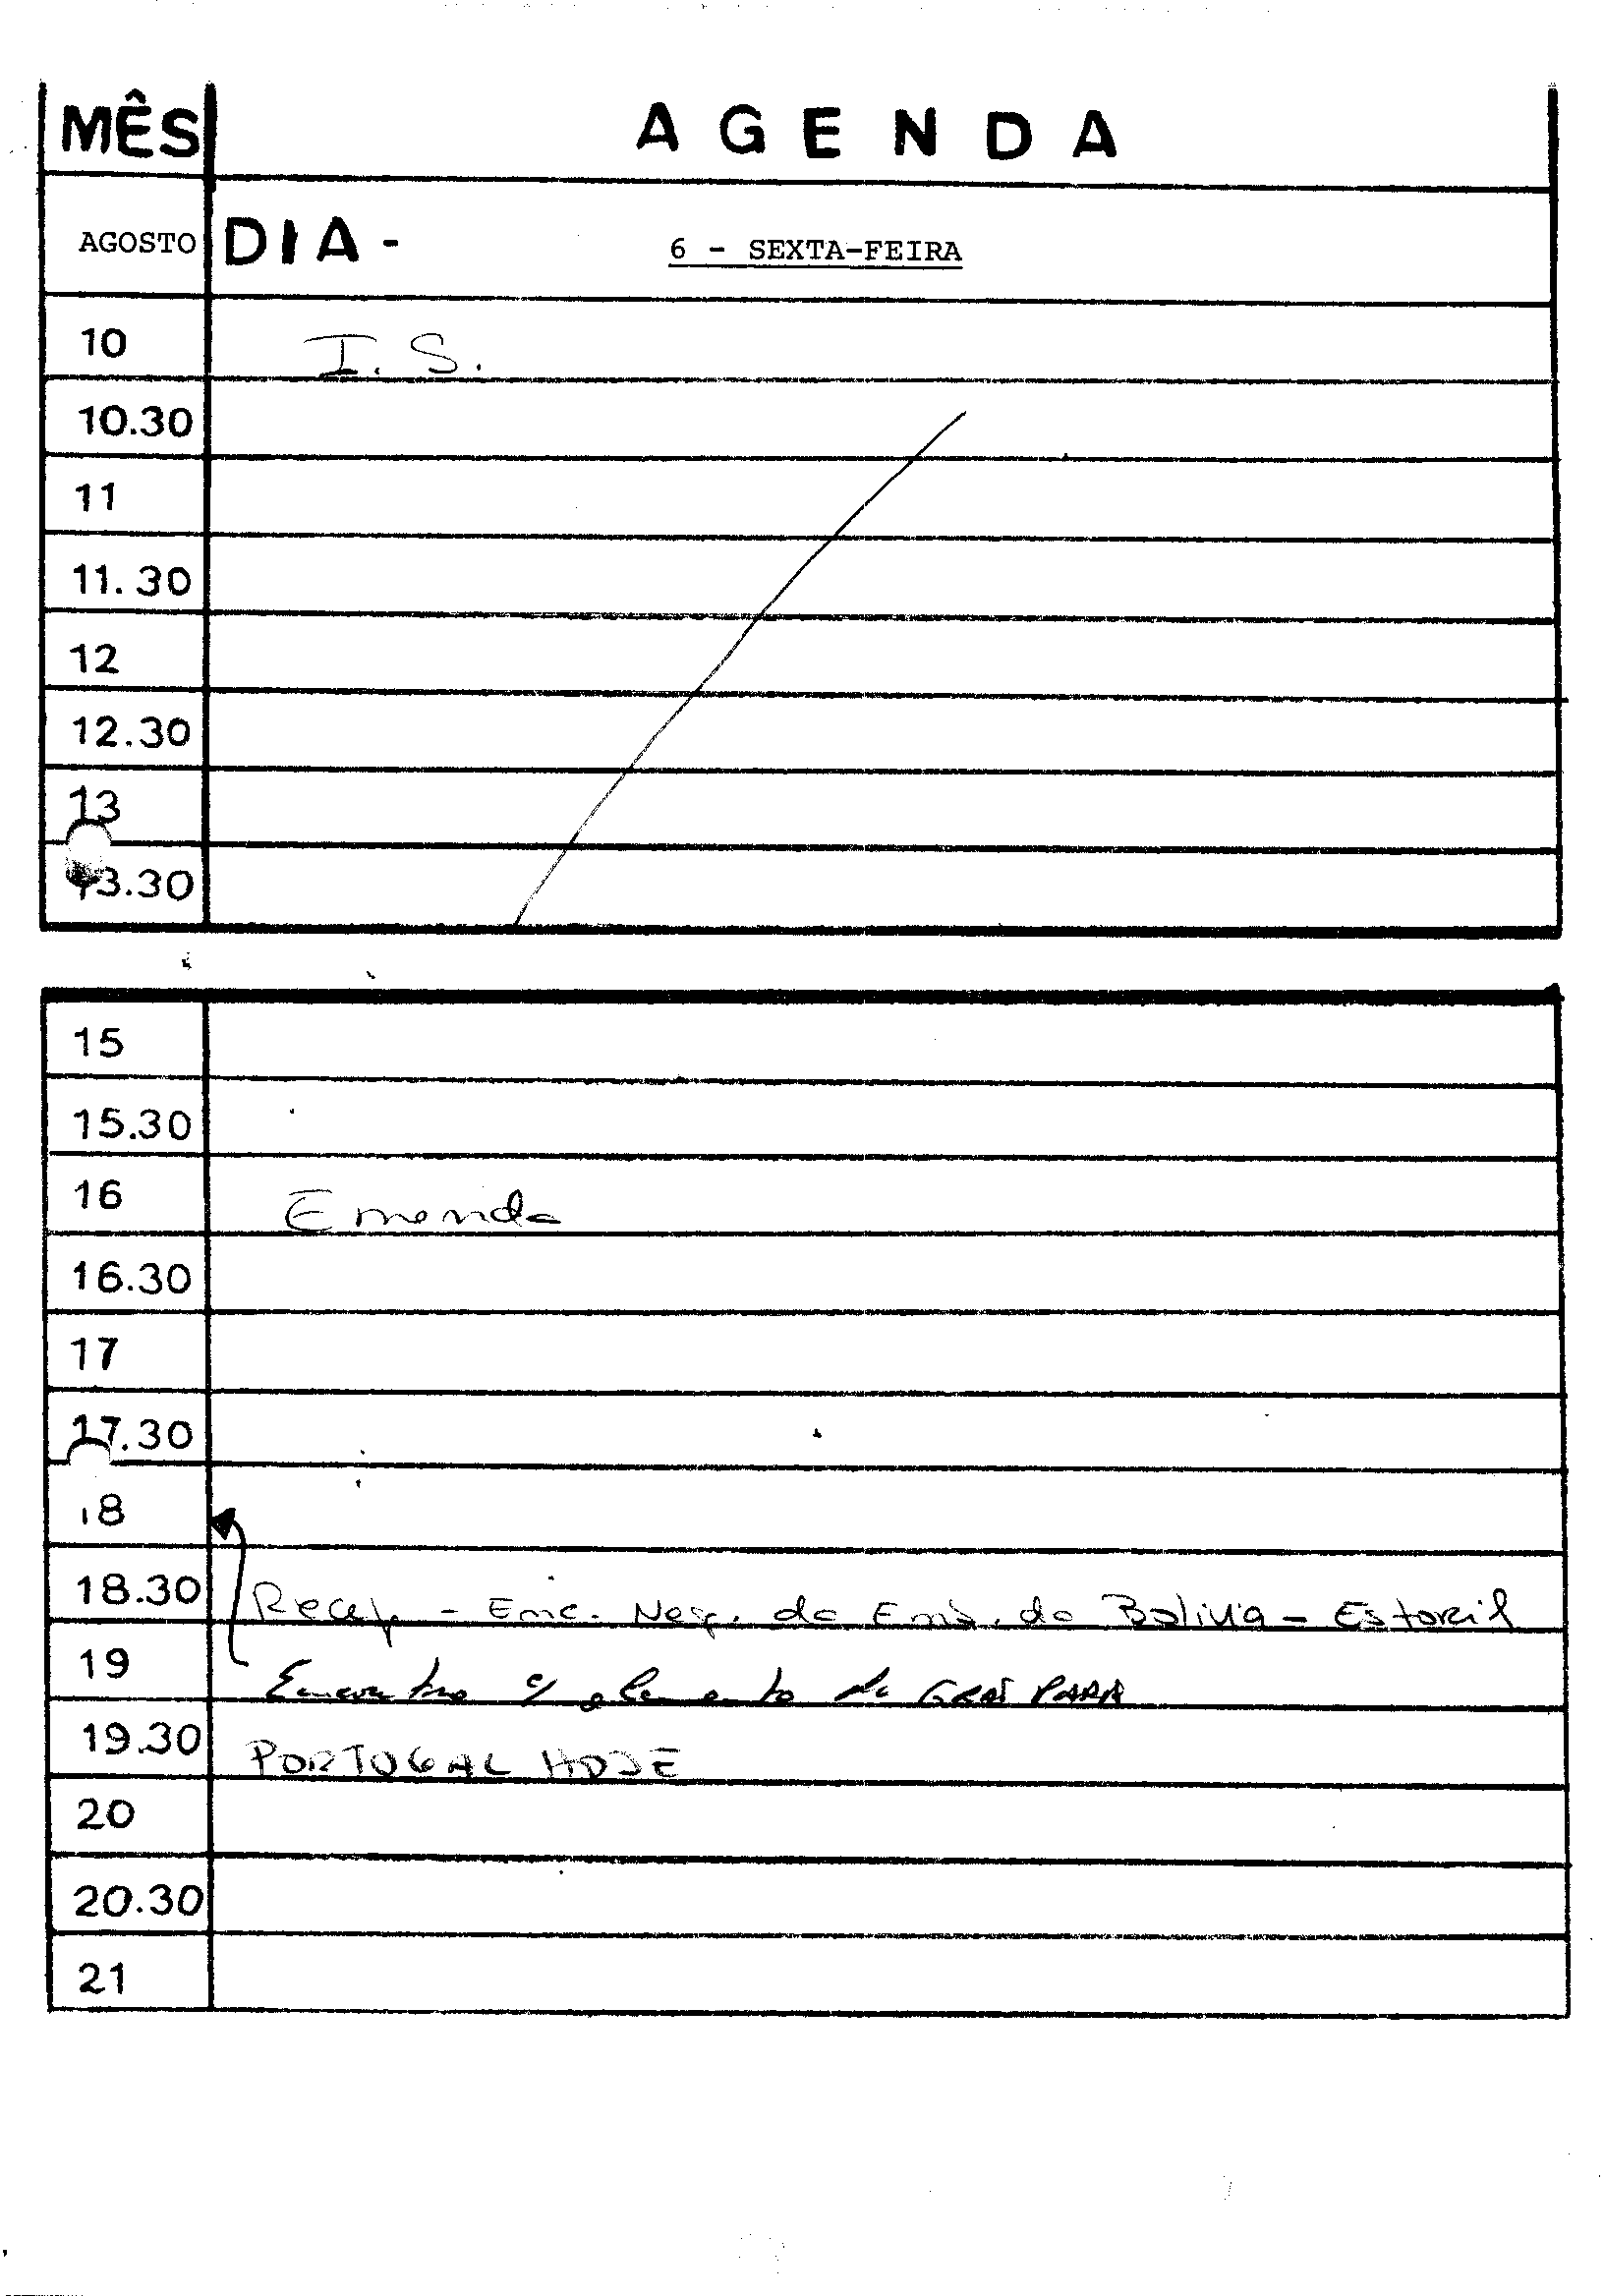 MÊS A G E N D A
AGOSTO DIA - 6 - SEXTA-FEIRA
10 I. S.
10.30
11
11.30
12
12.30
13
13.30
15
15.30
16 Emenda
16.30
17
17.30
18
18.30 Recep. - Enc. Neg. da Emb. da Bolivia - Estoril
19 Encontro c/ elemento da GRAÕ PARÁ
19.30 PORTUGAL HOJE
20
20.30
21